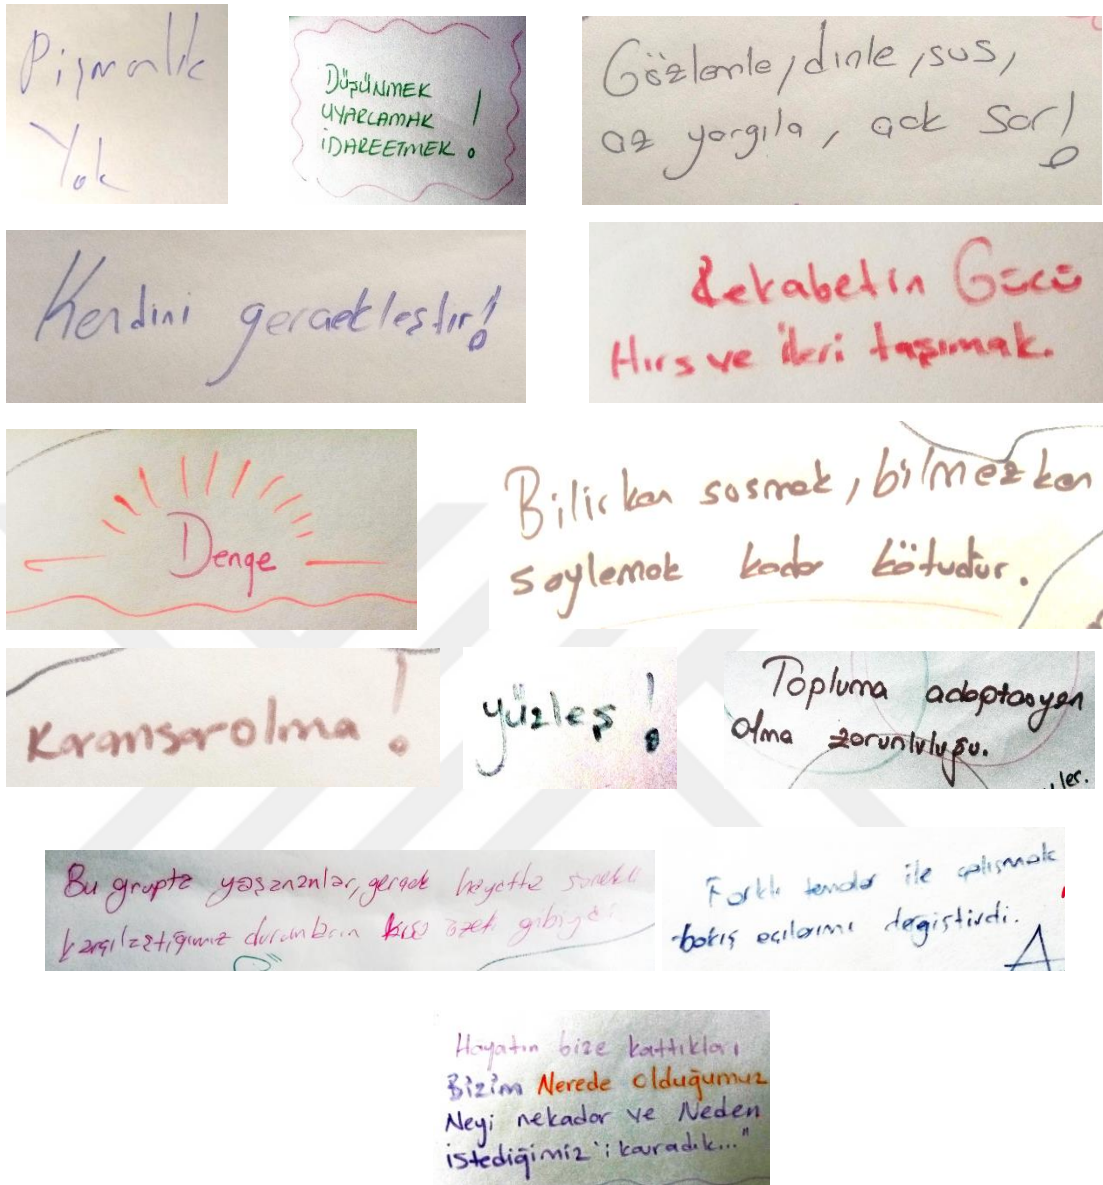 Pişmanlık
Yok
DÜŞÜNMEK
UYARLAMAK
İDAREETMEK !
Gözlemle, dinle, sus,
az yargıla, çok sor!
Kendini gerçekleştir!
Rekabetin Gücü
Hırs ve ileri taşımak.
Denge
Bilirken susmak, bilmezken
söylemek kadar kötüdür.
Karamsar olma !
yüzleş !
Topluma adaptasyon
olma zorunluluğu.
ler.
Bu grupta yaşananlar, gerçek hayatta sürekli
karşılaştığımız durumların kısa özeti gibiydi
Farklı temalar ile çalışmak
bakış açılarımı değiştirdi.
A
Hayatın bize kattıkları
Bizim Nerede Olduğumuz
Neyi nekadar ve Neden
istediğimiz'i kavradık..."